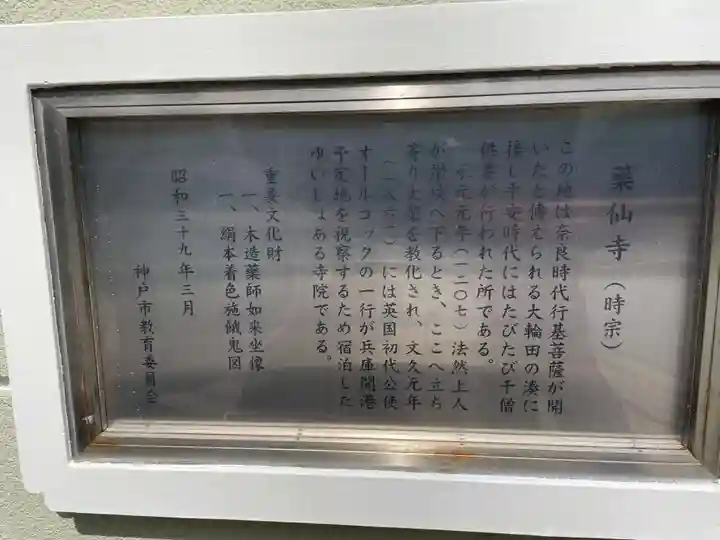 薬仙寺（時宗）
この地は奈良時代行基菩薩が開
いたと傳えられる大輪田の湊に
接し平安時代にはたびたび千僧
供養が行われた所である。
元元年（一二〇七）法然上人
が讃岐へ下るとき、ここへ立ち
寄り大衆を教化され、文久元年
（一八六一）には英国初代公使
オールコックの一行が兵庫開港
予定地を視察するため宿泊した
ゆいしょある寺院である。
重要文化財
一、木造薬師如来坐像
一、絹本着色施餓鬼図
昭和三十九年三月
神戸市教育委員会